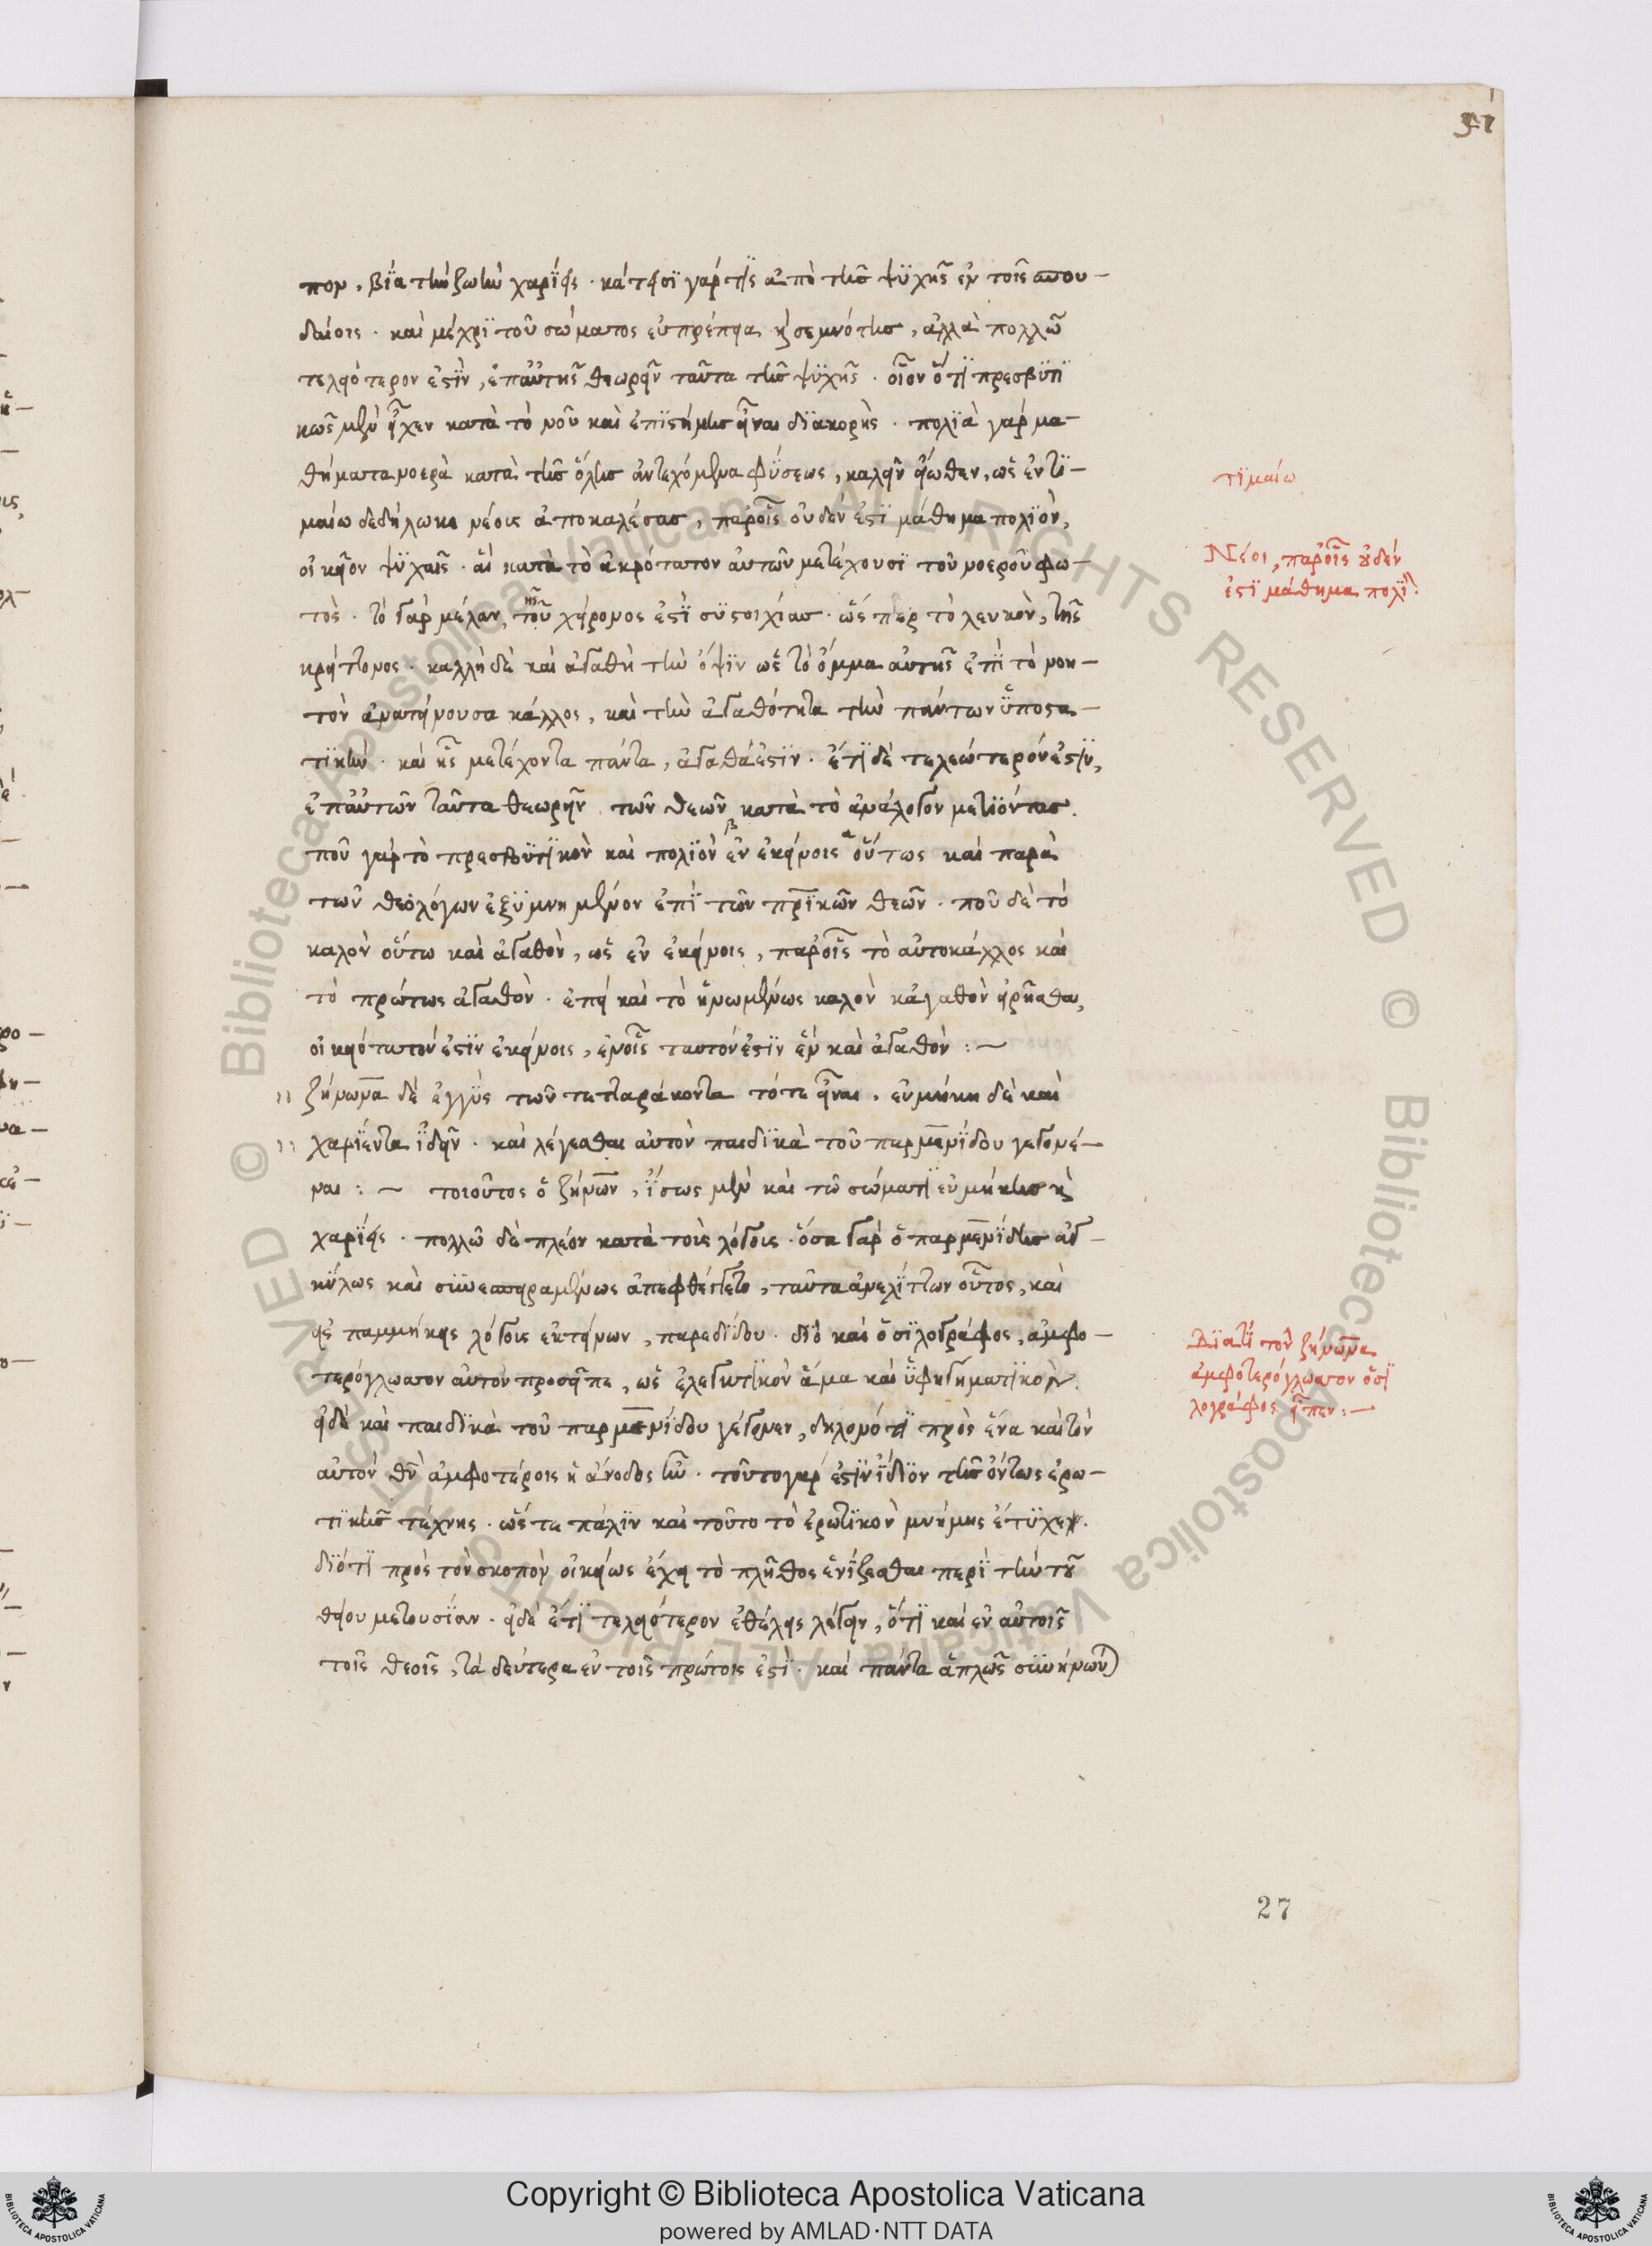 27
που, βία τὴν ζωὴν χαρίεις. κάτεισι γάρ τις ἀπὸ τῆς ψυχῆς ἐν τοῖς σπου-
δαίοις. καὶ μέχρι τοῦ σώματος εὐπρέπεια κ(αὶ) σεμνότης, ἀλλὰ πολλῶ
τελειότερον ἐστὶν, ἐπ' αὐτῆς θεωρεῖν ταῦτα τῆς ψυχῆς. οἷον ὅτι πρεσβυτι
κῶς μὲν εἶχεν κατὰ τὸ νοῦ καὶ ἐπιστήμης εἶναι διακορὴς. πολιὰ γὰρ μα-
θήματα νοερὰ κατὰ τῆς ὅλης ἀντεχόμενα φύσεως, καλεῖν εἴωθεν, ὡς ἐν τι-
μαίω δεδήλωκε νέοις ἀποκαλέσας, παρ' οἷς οὐδέν ἐστι μάθημα πολιὸν,
οἰκεῖον ψυχαῖς. αἳ κατὰ τὸ ἀκρότατον αὐτῶν μετέχουσι τοῦ νοεροῦ φω-
τὸς. τὸ γὰρ μέλαν, τοῦ τῆς χείρονος ἐστὶ συστοιχίας. ὥσπερ τὸ λευκὸν, τῆς
κρείττονος. καλλὴ δὲ καὶ ἀγαθὴ τὴν ὄψιν ὡς τὸ ὄμμα αὐτῆς ἐπὶ τὸ νοη-
τὸν ἀνατείνουσα κάλλος, καὶ τὴν ἀγαθότητα τὴν πάντων ὑποστα-
τικὴν. καὶ ἧς μετέχοντα πάντα, ἀγαθά ἐστιν. ἔτι δὲ τελεώτερόν ἐστιν,
ἐπ' αὐτῶν ταῦτα θεωρεῖν τῶν θεῶν κατὰ τὸ ἀνάλογον μετιόντας.
ποῦ γὰρ τὸ πρεσβυτικὸν καὶ πολιὸν β ἐν ἐκείνοις α οὕτως καὶ παρὰ
τῶν θεολόγων ἐξυμνημένον ἐπὶ τῶν πρικῶν θεῶν. ποῦ δὲ τὸ
καλὸν οὕτω καὶ ἀγαθὸν, ὡς ἐν ἐκείνοις, παρ' οἷς τὸ αὐτοκάλλος καὶ
τὸ πρώτως ἀγαθὸν. ἐπεὶ καὶ τὸ ἡνωμένως καλὸν κἀγαθὸν εἰρῆσθαι,
οἰκειότατόν ἐστιν ἐκείνοις, ἐν οἷς ταυτόν ἐστιν ἓν καὶ ἀγαθὸν :~
ζήνωνα δὲ ἐγγὺς τῶν τετταράκοντα τότε εἶναι. εὐμήκη δὲ καὶ
χαρίεντα ἰδεῖν. καὶ λέγεσθαι αὐτὸν παιδικὰ τοῦ παρμενίδου γεγονέ-
ναι :~ τοιοῦτος ὁ ζήνων, ἴσως μὲν καὶ τῶ σώματι εὐμήκης κ(αὶ)
χαρίεις. πολλῶ δὲ πλέον κατὰ τοὺς λόγους. ὅσα γὰρ ὁ παρμενίδης ἀγ-
κύλως καὶ συνεσπειραμένως ἀπεφθέγγετο, ταῦτα ἀνελίττων οὗτος, καὶ
εἰς παμμήκεις λόγους ἐκτείνων, παρεδίδου. διὸ καὶ ὁ σιλογράφος, ἀμφο-
τερόγλωσσον αὐτὸν προσεῖπε, ὡς ἐλεγκτικὸν ἅμα καὶ ὑφηγηματικὸν.
εἰ δὲ καὶ παιδικὰ τοῦ παρμενίδου γέγονεν, δηλονότι πρὸς ἕνα καὶ τὸν
αὐτὸν θν ἀμφοτέροις ἡ ἄνοδος ἦν. τοῦτο γάρ ἐστιν ἴδιον τῆς ὄντως ἐρω-
τικῆς τέχνης. ὥστε πάλιν καὶ τοῦτο τὸ ἐρωτικὸν μνήμης ἔτυχεν.
διότι πρὸς τὸν σκοπὸν οἰκείως ἔχει τὸ πλῆθος ἑνίζεσθαι περὶ τὴν τοῦ
θείου μετουσίαν. εἰ δὲ ἔτι τελειότερον ἐθέλεις λέγειν, ὅτι καὶ ἐν αὐτοῖς
τοῖς θεοῖς, τὰ δεύτερα ἐν τοῖς πρώτοις ἐστὶ. καὶ πάντα ἁπλῶς συνήνων)
τιμαίω
Νέοι, παρ' οἷς οὐδέν
ἐστι μάθημα πολιὸν
Διατί τὸν ζήνωνα
ἀμφοτερόγλωσσον ὁ σι
λογράφος εἶπεν :—
Copyright © Biblioteca Apostolica Vaticana
powered by AMLAD·NTT DATA